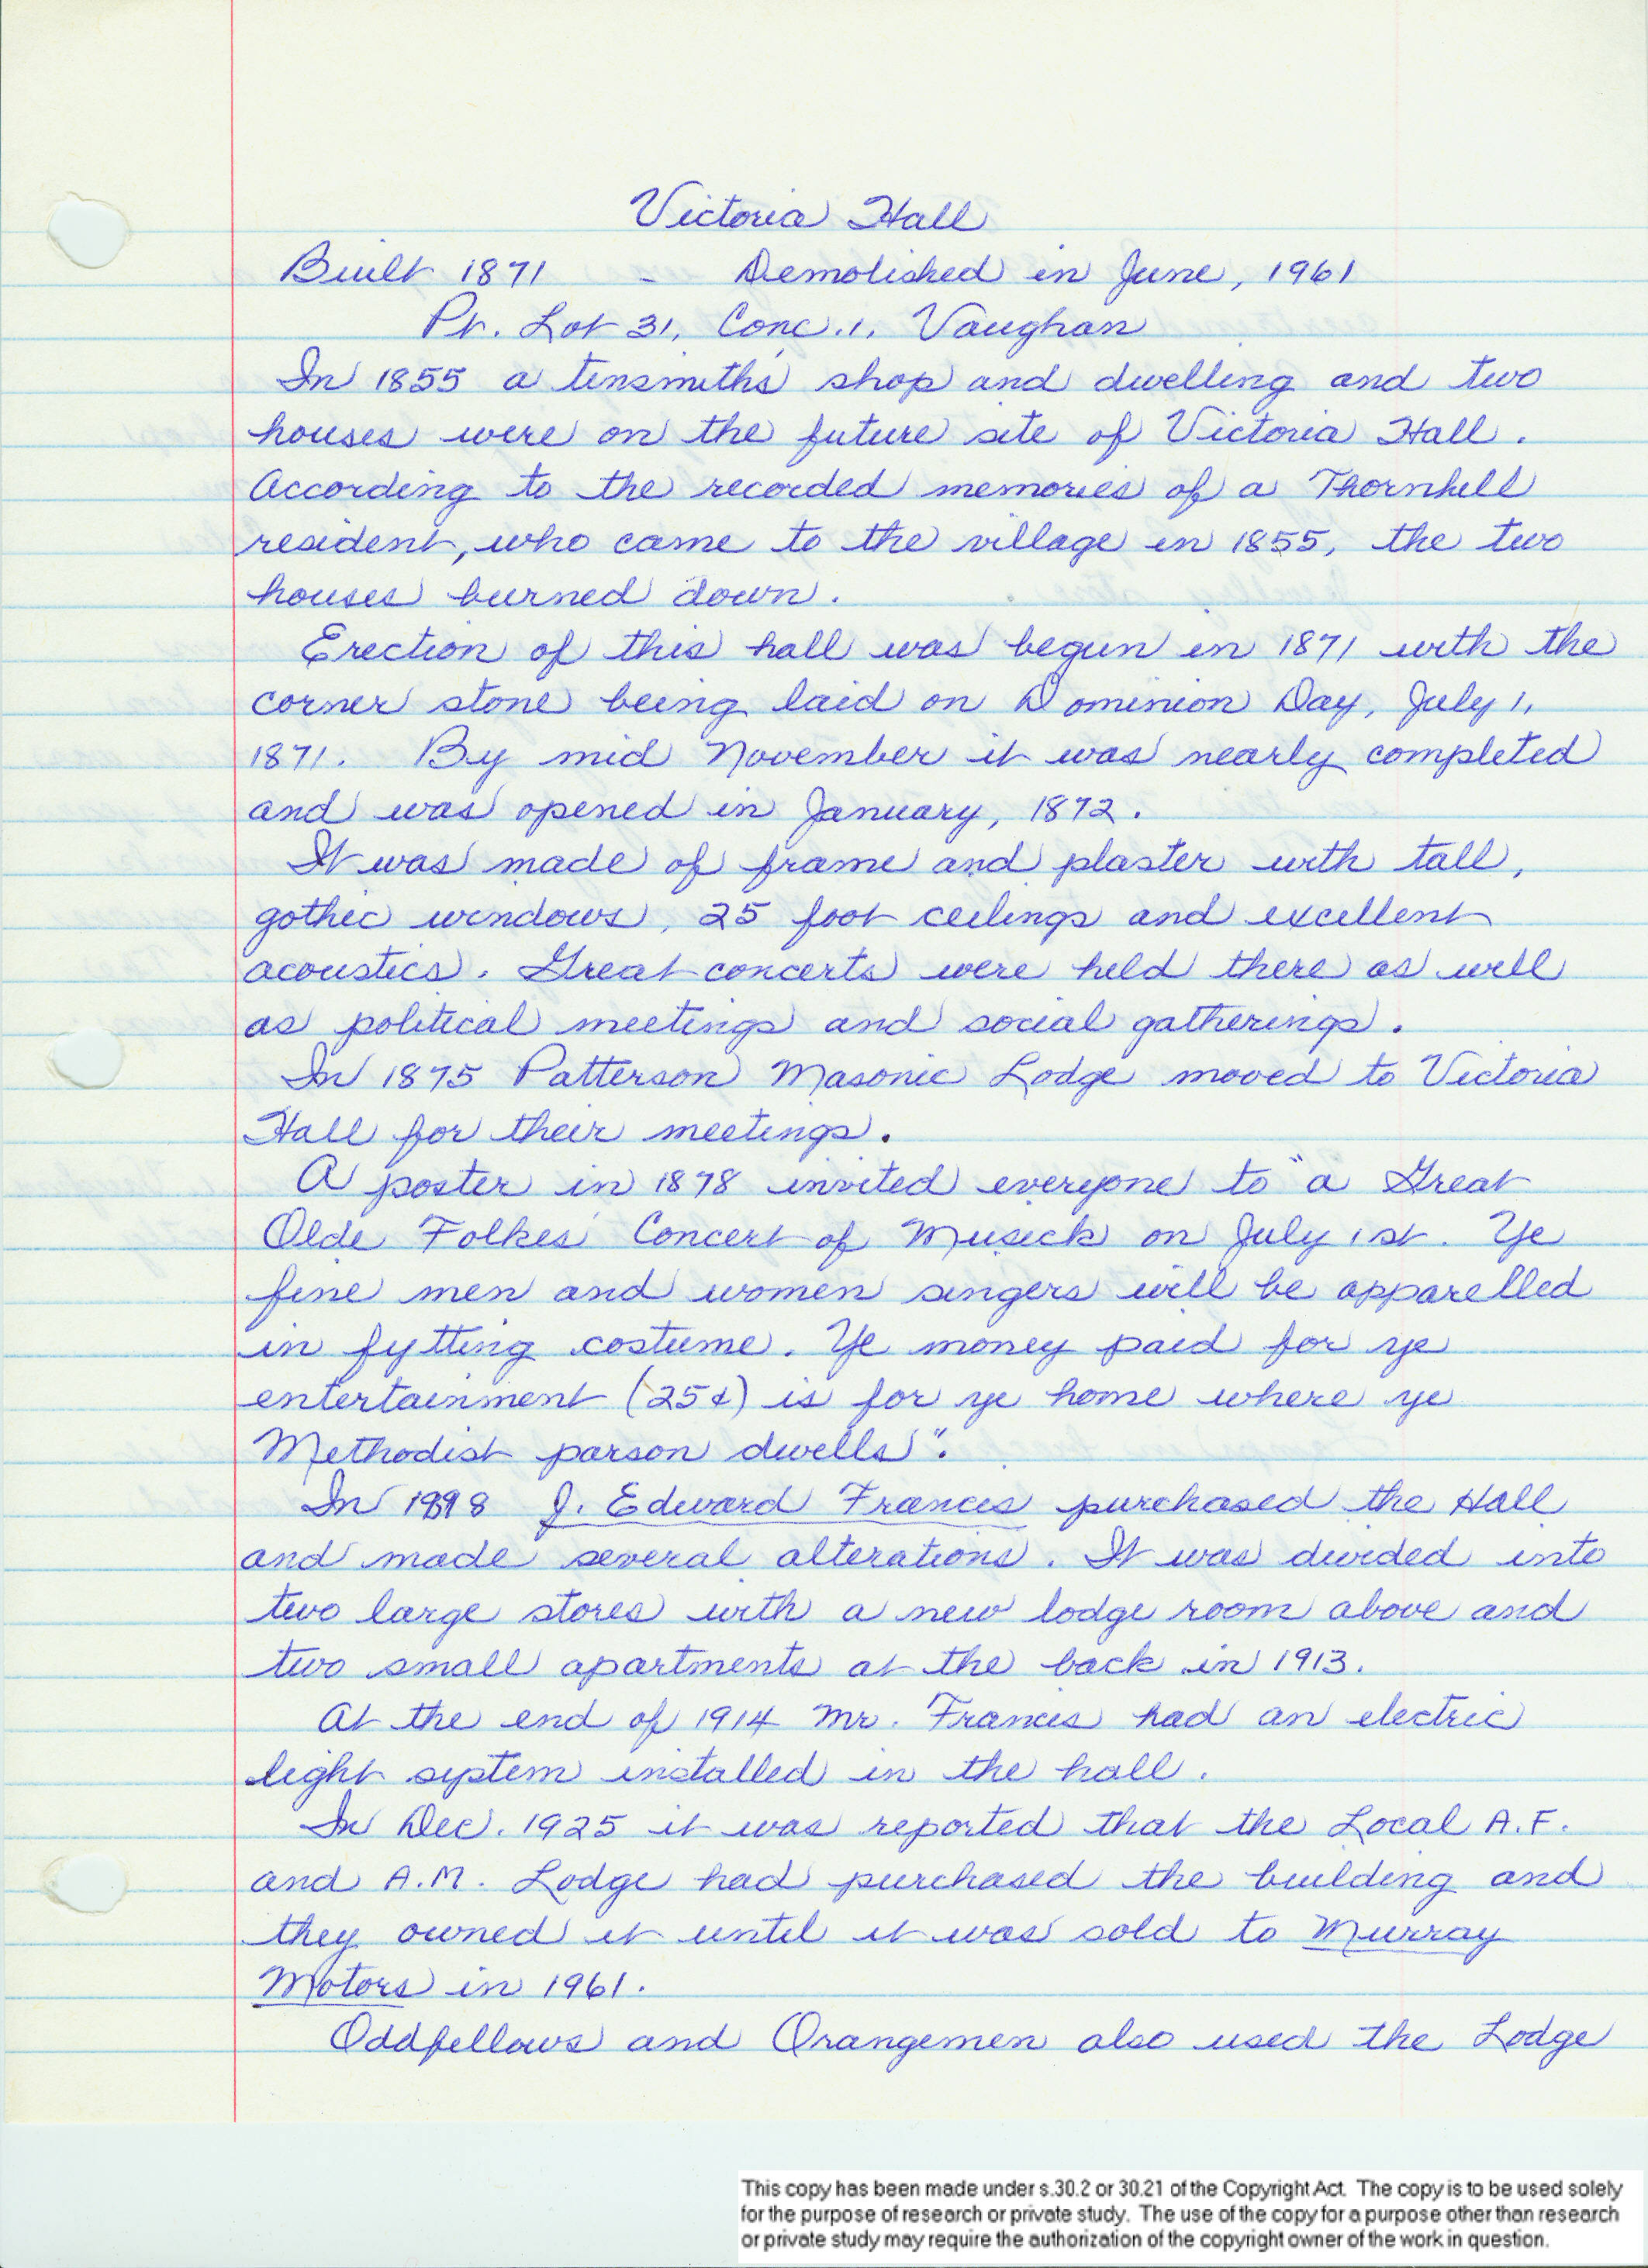 Victoria Hall
Built 1871 - Demolished in June, 1961
Pt. Lot 31, Conc. 1, Vaughan
In 1855 a tinsmith's shop and dwelling and two
houses were on the future site of Victoria Hall.
According to the recorded memories of a Thornhill
resident, who came to the village in 1855, the two
houses burned down.
Erection of this hall was begun in 1871 with the
corner stone being laid on Dominion Day, July 1,
1871. By mid November it was nearly completed
and was opened in January, 1872.
It was made of frame and plaster with tall,
gothic windows, 25 foot ceilings and excellent
acoustics. Great concerts were held there as well
as political meetings and social gatherings.
In 1875 Patterson Masonic Lodge moved to Victoria
Hall for their meetings.
A poster in 1878 invited everyone to "a Great
Olde Folkes' Concert of Musick on July 1st. Ye
fine men and women singers will be apparelled
in fytting costume. Ye money paid for ye
entertainment (25¢) is for ye home where ye
Methodist parson dwells".
In 1898 J. Edward Francis purchased the Hall
and made several alterations. It was divided into
two large stores with a new lodge room above and
two small apartments at the back in 1913.
At the end of 1914 Mr. Francis had an electric
light system installed in the hall.
In Dec. 1925 it was reported that the Local A.F.
and A.M. Lodge had purchased the building and
they owned it until it was sold to Murray
Motors in 1961.
Oddfellows and Orangemen also used the Lodge
This copy has been made under s.30.2 or 30.21 of the Copyright Act. The copy is to be used solely
for the purpose of research or private study. The use of the copy for a purpose other than research
or private study may require the authorization of the copyright owner of the work in question.